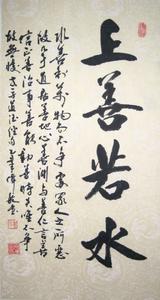 上善若水
水善利萬物而不爭處眾人之所惡
故幾于道居善地心善淵與善仁言善
信正善治事善能動善時夫唯不爭
故無尤